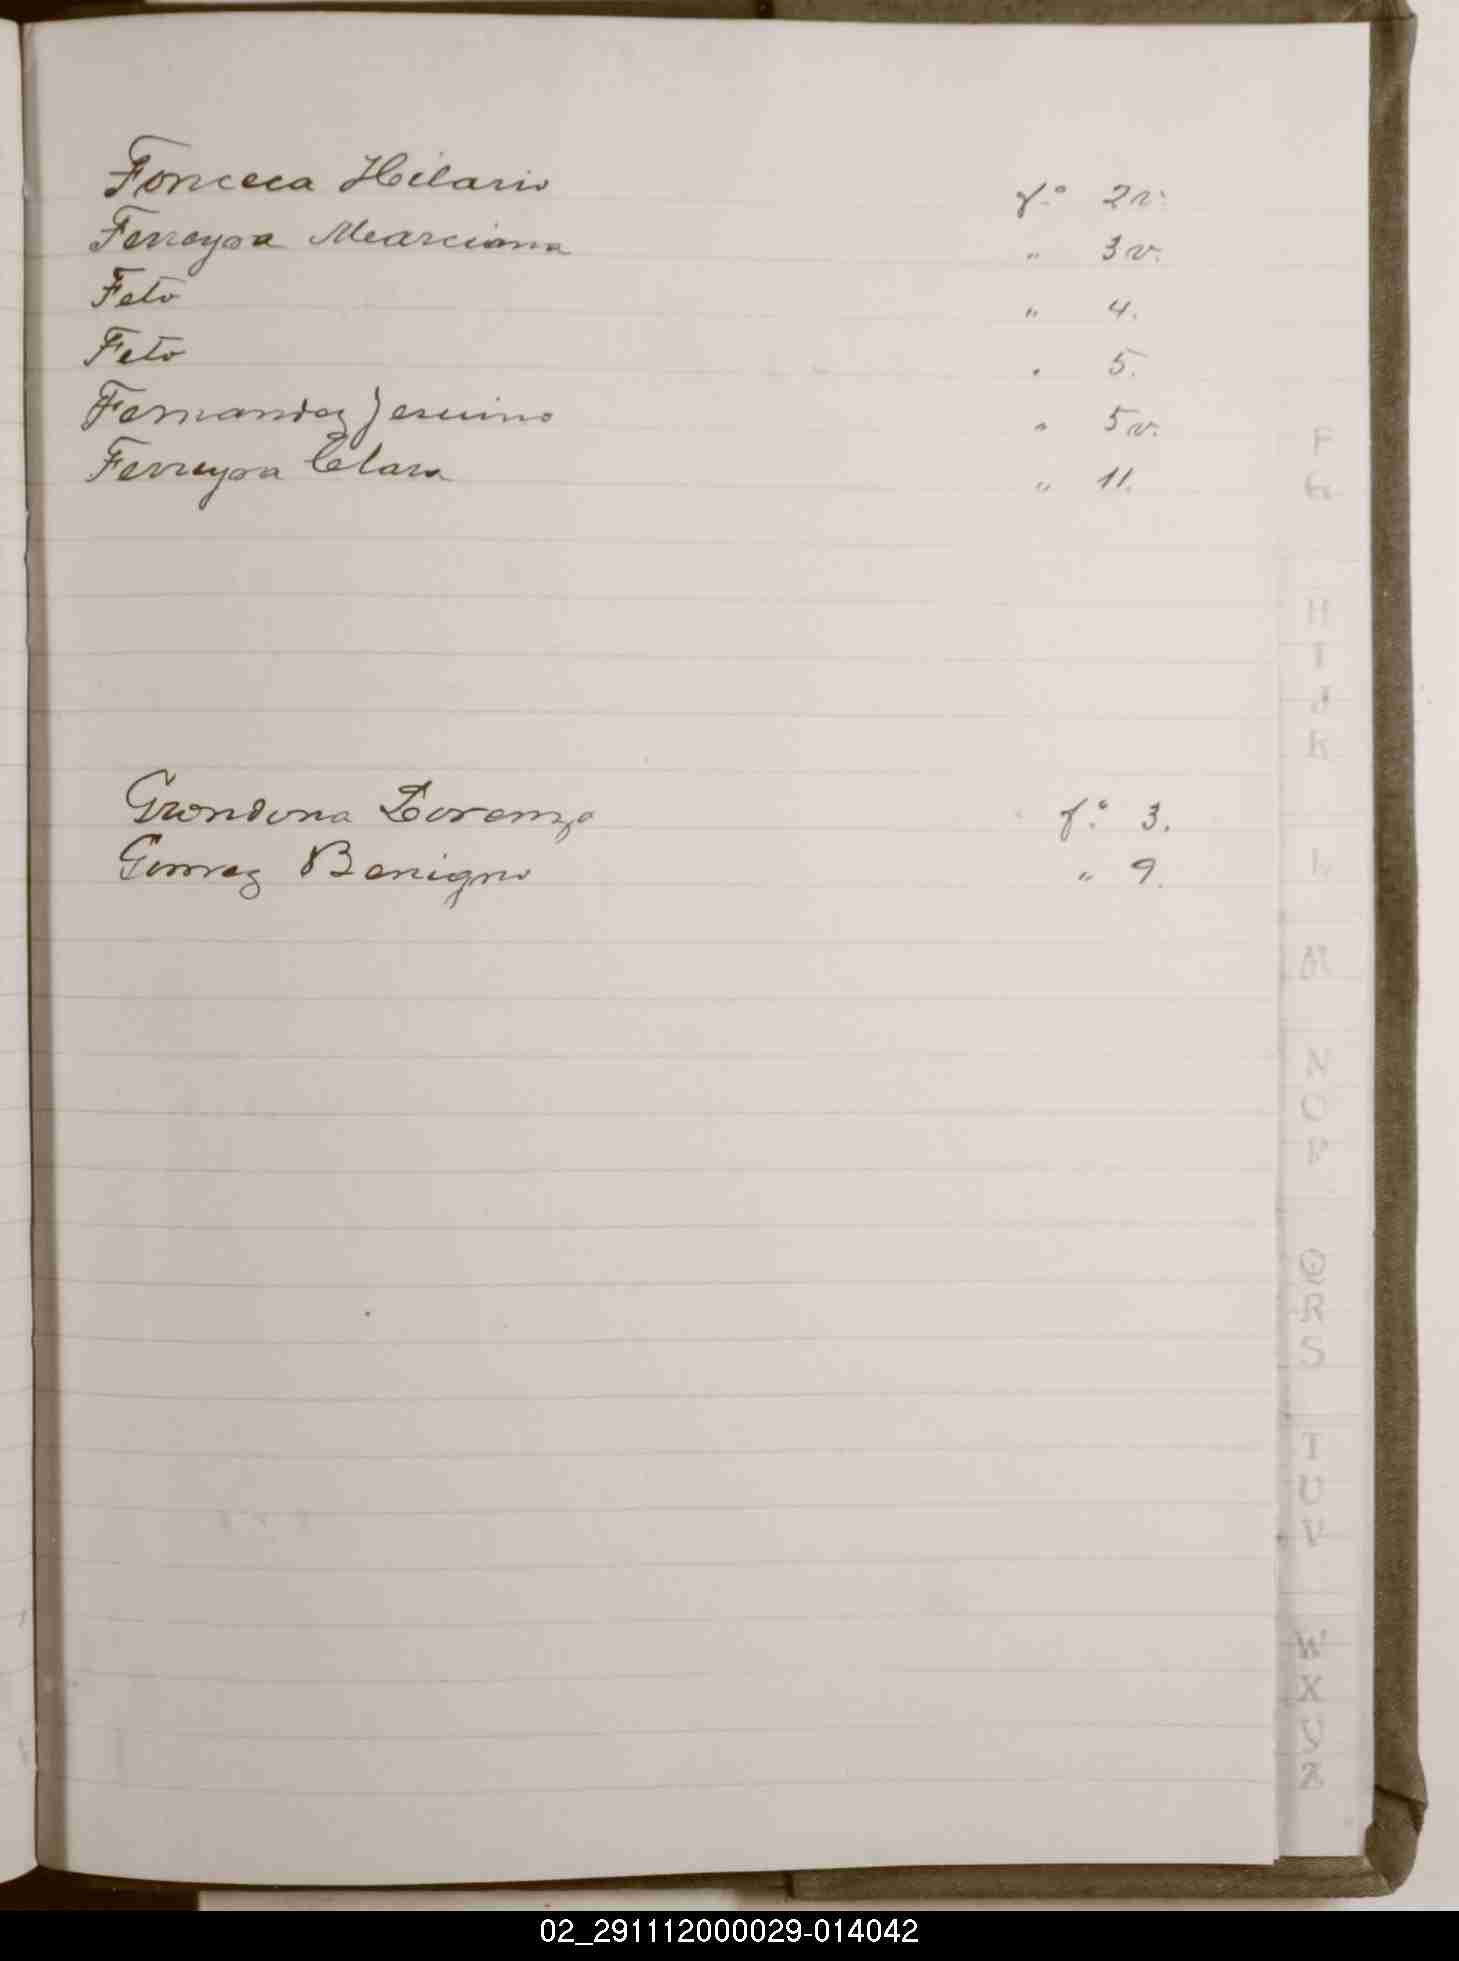 Fonceca Hilario fº 2v.
Ferreyra Marciana " 3v.
Feto " 4.
Feto " 5.
Fernandez Jesuino " 5v.
Ferreyra Clara " 11.
Grondona Lorenzo fº 3.
Gomez Benigno " 9.
F
G
H
I
J
K
L
M
N
O
P
Q
R
S
T
U
V
W
X
Y
Z
02_291112000029-014042